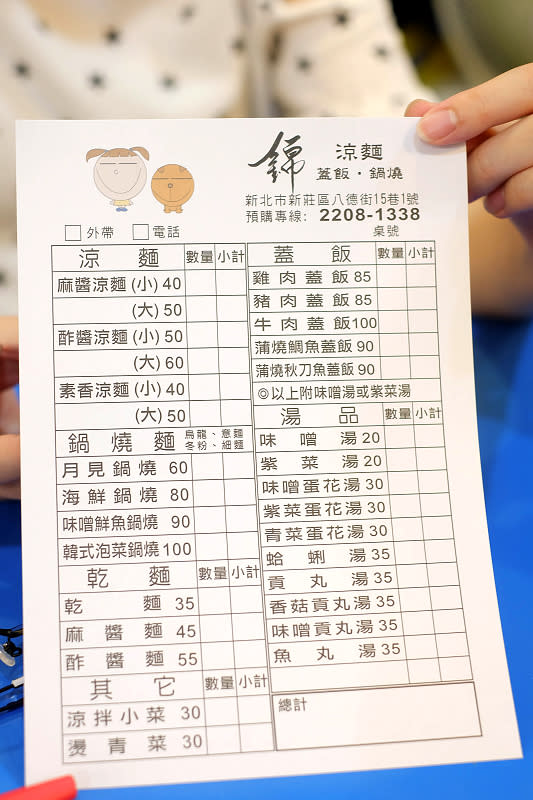 錦 涼麵
蓋飯·鍋燒
新北市新莊區八德街15巷1號
預購專線: 2208-1338
外帶 電話
桌號
涼麵 數量 小計
麻醬涼麵(小) 40
(大) 50
酢醬涼麵(小) 50
(大) 60
素香涼麵(小) 40
(大) 50
鍋燒麵 烏龍、意麵
冬粉、細麵
月見鍋燒 60
海鮮鍋燒 80
味噌鮮魚鍋燒 90
韓式泡菜鍋燒 100
乾麵 數量 小計
乾麵 35
麻醬麵 45
酢醬麵 55
其它 數量 小計
涼拌小菜 30
燙青菜 30
蓋飯 數量 小計
雞肉蓋飯 85
豬肉蓋飯 85
牛肉蓋飯 100
蒲燒鯛魚蓋飯 90
蒲燒秋刀魚蓋飯 90
◎以上附味噌湯或紫菜湯
湯品 數量 小計
味噌湯 20
紫菜湯 20
味噌蛋花湯 30
紫菜蛋花湯 30
青菜蛋花湯 30
蛤蜊湯 35
貢丸湯 35
香菇貢丸湯 35
味噌貢丸湯 35
魚丸湯 35
總計